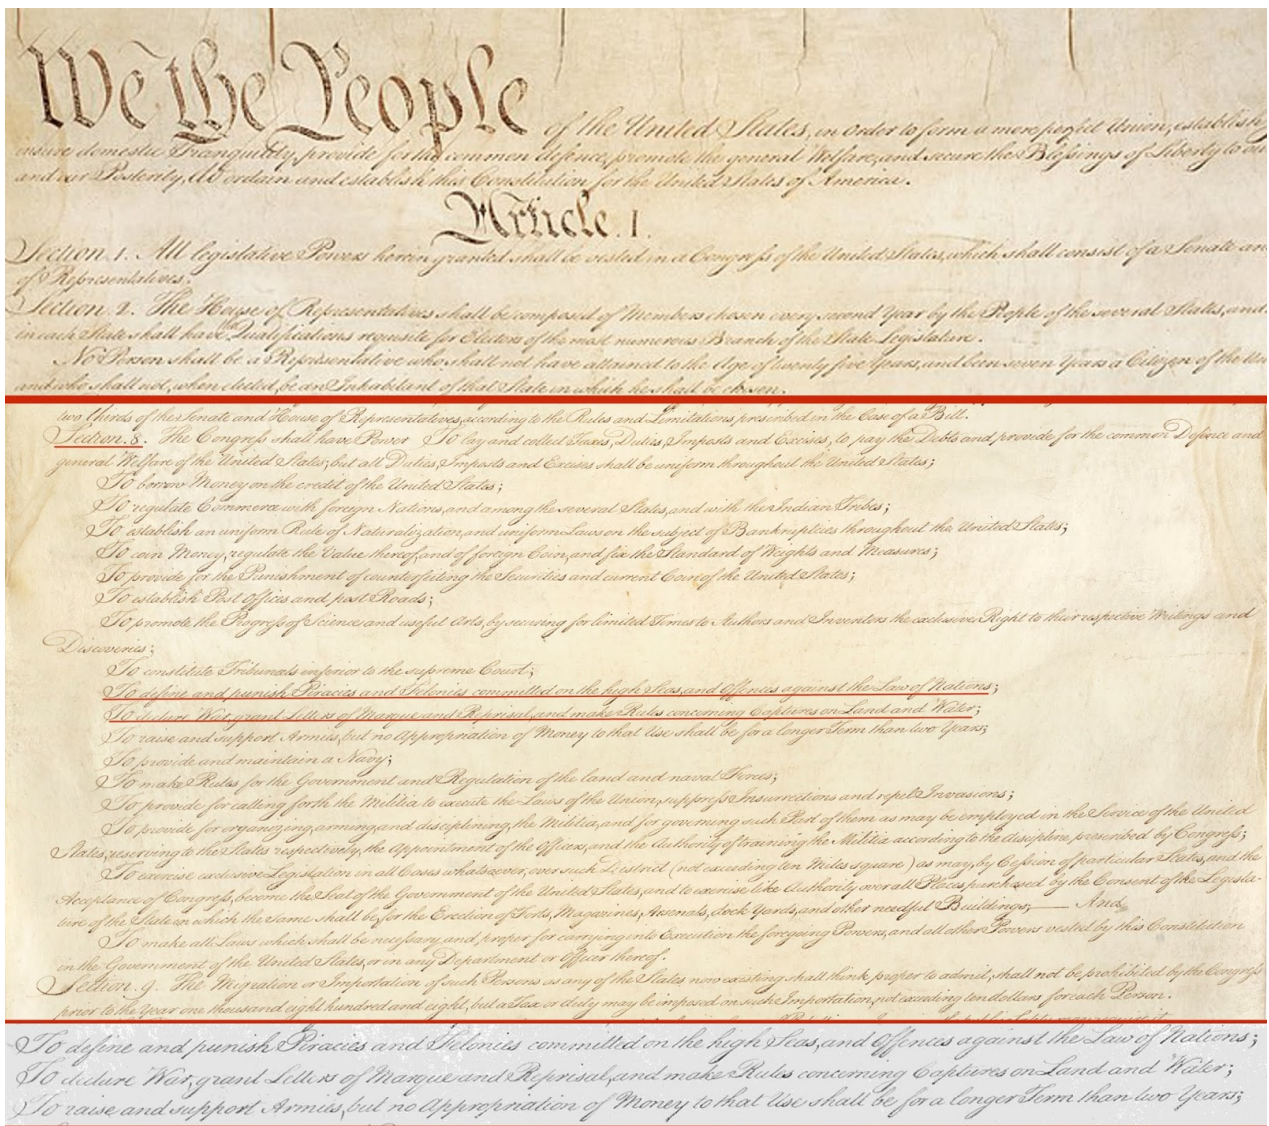 We the People of the United States, in Order to form a more perfect Union, establish
insure domestic Tranquility, provide for the common defence, promote the general Welfare, and secure the Blessings of Liberty to ou
and our Posterity, do ordain and establish this Constitution for the United States of America.
Article. I.
Section. 1. All legislative Powers herein granted shall be vested in a Congress of the United States, which shall consist of a Senate an
of Representatives.
Section. 2. The House of Representatives shall be composed of Members chosen every second Year by the People of the several States, and
in each State shall have the Qualifications requisite for Electors of the most numerous Branch of the State Legislature.
No Person shall be a Representative who shall not have attained to the Age of twenty five Years, and been seven Years a Citizen of the Un
and who shall not, when elected, be an Inhabitant of that State in which he shall be chosen.
two thirds of the Senate and House of Representatives, according to the Rules and Limitations prescribed in the Case of a Bill.
Section. 8. The Congress shall have Power To lay and collect Taxes, Duties, Imposts and Excises, to pay the Debts and provide for the common Defence and
general Welfare of the United States; but all Duties, Imposts and Excises shall be uniform throughout the United States;
To borrow Money on the credit of the United States;
To regulate Commerce with foreign Nations, and among the several States, and with the Indian Tribes;
To establish an uniform Rule of Naturalization, and uniform Laws on the subject of Bankruptcies throughout the United States;
To coin Money, regulate the Value thereof, and of foreign Coin, and fix the Standard of Weights and Measures;
To provide for the Punishment of counterfeiting the Securities and current Coin of the United States;
To establish Post Offices and post Roads;
To promote the Progress of Science and useful Arts, by securing for limited Times to Authors and Inventors the exclusive Right to their respective Writings and
Discoveries;
To constitute Tribunals inferior to the supreme Court;
To define and punish Piracies and Felonies committed on the high Seas, and Offences against the Law of Nations;
To declare War, grant Letters of Marque and Reprisal, and make Rules concerning Captures on Land and Water;
To raise and support Armies, but no Appropriation of Money to that Use shall be for a longer Term than two Years;
To provide and maintain a Navy;
To make Rules for the Government and Regulation of the land and naval Forces;
To provide for calling forth the Militia to execute the Laws of the Union, suppress Insurrections and repel Invasions;
To provide for organizing, arming, and disciplining, the Militia, and for governing such Part of them as may be employed in the Service of the United
States, reserving to the States respectively, the Appointment of the Officers, and the Authority of training the Militia according to the discipline prescribed by Congress;
To exercise exclusive Legislation in all Cases whatsoever, over such District (not exceeding ten Miles square) as may, by Cession of particular States, and the
Acceptance of Congress, become the Seat of the Government of the United States, and to exercise like Authority over all Places purchased by the Consent of the Legisla-
ture of the State in which the Same shall be, for the Erection of Forts, Magazines, Arsenals, dock-Yards, and other needful Buildings;—And
To make all Laws which shall be necessary and proper for carrying into Execution the foregoing Powers, and all other Powers vested by this Constitution
in the Government of the United States, or in any Department or Officer thereof.
Section. 9. The Migration or Importation of such Persons as any of the States now existing shall think proper to admit, shall not be prohibited by the Congress
prior to the Year one thousand eight hundred and eight, but a Tax or duty may be imposed on such Importation, not exceeding ten dollars for each Person.
To define and punish Piracies and Felonies committed on the high Seas, and Offences against the Law of Nations;
To declare War, grant Letters of Marque and Reprisal, and make Rules concerning Captures on Land and Water;
To raise and support Armies, but no Appropriation of Money to that Use shall be for a longer Term than two Years;